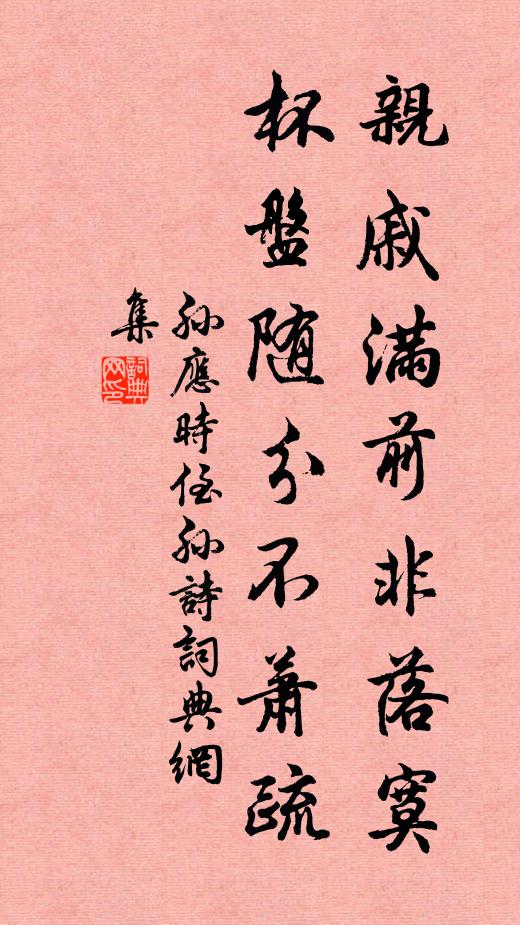 親戚滿前非落寞
杯盤随分不蕭疏
孫應時侄孫詩詞典網
集
詞典網印